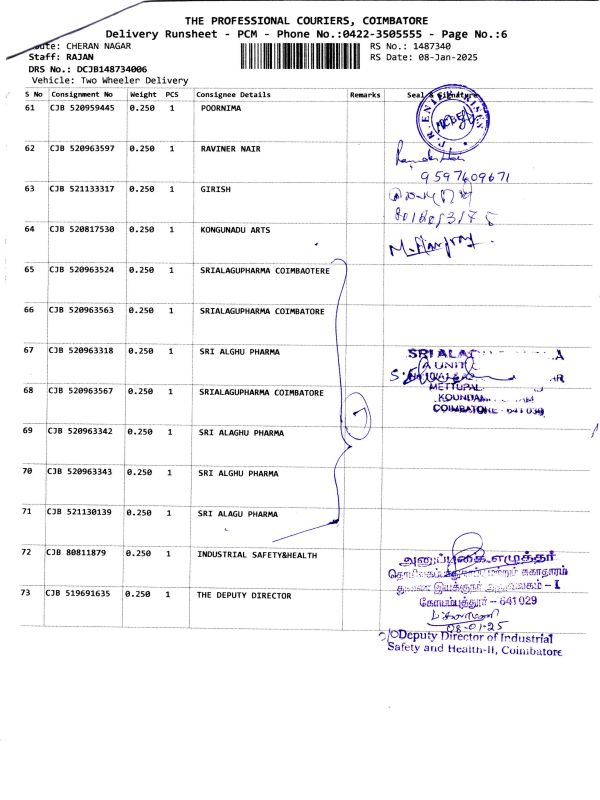 THE PROFESSIONAL COURIERS, COIMBATORE
Delivery Runsheet - PCM - Phone No.:0422-3505555 - Page No.:6
oute: CHERAN NAGAR RS No.: 1487340
Staff: RAJAN RS Date: 08-Jan-2025
DRS No.: DCJB148734006
Vehicle: Two Wheeler Delivery
S No Consignment No Weight PCS Consignee Details Remarks Seal & Signature
61 CJB 520959445 0.250 1 POORNIMA
62 CJB 520963597 0.250 1 RAVINER NAIR
9597609671
63 CJB 521133317 0.250 1 GIRISH
64 CJB 520817530 0.250 1 KONGUNADU ARTS
65 CJB 520963524 0.250 1 SRIALAGUPHARMA COIMBAOTERE
66 CJB 520963563 0.250 1 SRIALAGUPHARMA COIMBATORE
67 CJB 520963318 0.250 1 SRI ALGHU PHARMA
SRI ALA A
A UNIT
METTUPAL
KOUNDAM
COIMBATORE - 641 030
68 CJB 520963567 0.250 1 SRIALAGUPHARMA COIMBATORE
7
69 CJB 520963342 0.250 1 SRI ALAGHU PHARMA
70 CJB 520963343 0.250 1 SRI ALGHU PHARMA
71 CJB 521130139 0.250 1 SRI ALAGU PHARMA
72 CJB 80811879 0.250 1 INDUSTRIAL SAFETY&HEALTH
73 CJB 519691635 0.250 1 THE DEPUTY DIRECTOR
கோயம்புத்தூர் - 641 029
08-01-25
Deputy Director of Industrial
Safety and Health-II, Coimbatore